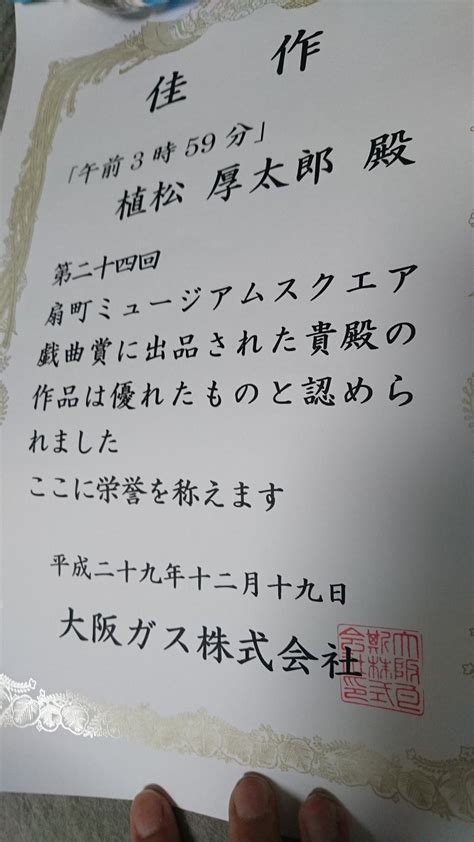 佳作
「午前3時59分」
植松 厚太郎 殿
第二十四回
扇町ミュージアムスクエア
戯曲賞に出品された貴殿の
作品は優れたものと認めら
れました
ここに栄誉を称えます
平成二十九年十二月十九日
大阪ガス株式会社